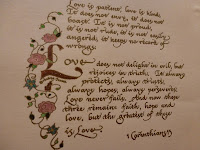 Love is patient, love is kind.
It does not envy, it does not
boast. It is not proud,
it is not rude, it is not easily
angered, it keeps no record of
wrongs.
Love does not delight in evil, but
rejoices in truth. It always
protects, always trusts,
always hopes, always perseveres.
Love never fails. And now these
three remain: faith, hope and
love, but the greatest of these
is Love.
1 Corinthians 13